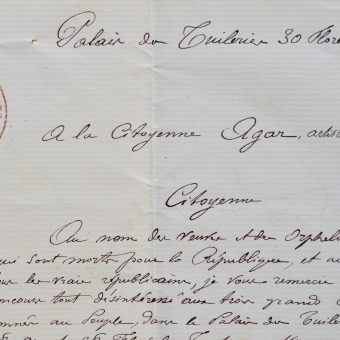 Palais des Tuileries 30 Flore
A la Citoyenne Agar, artis
Citoyenne
Au nom des veuves et des Orpheli
qui sont morts pour la République, et au
les vrais républicains, je vous remercie
concours tout désintéressé aux trois grands
donnés au Peuple, dans le Palais des Tuile